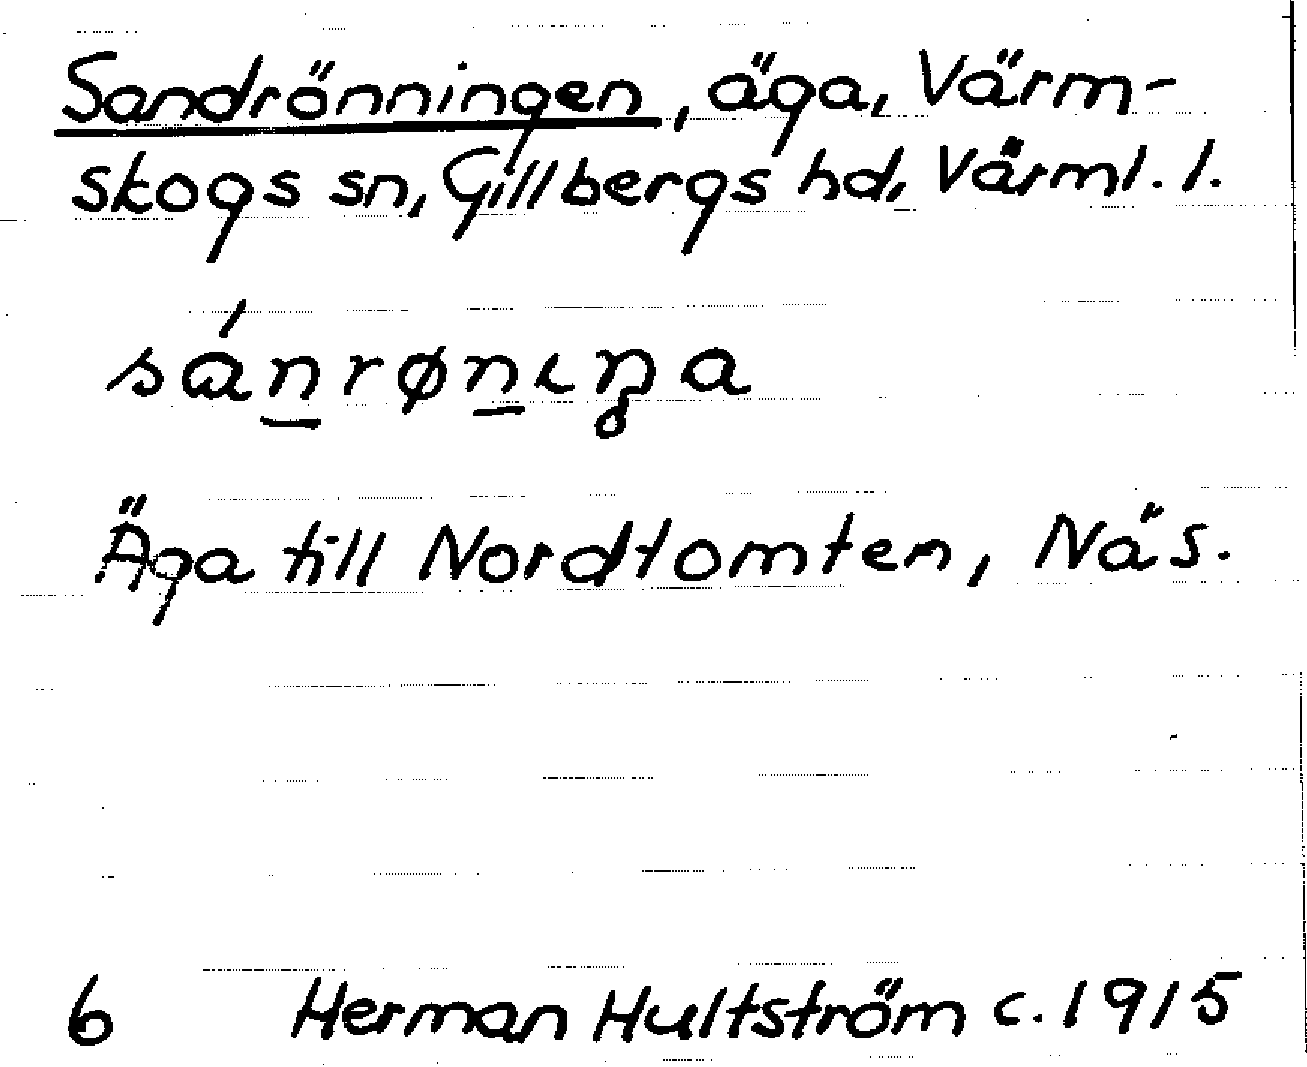 Sandrönningen, äga, Värm-
skogs sn, Gillbergs hd, Värml. l.
sánrønıŋa
Äga till Nordtomten, Näs.
6 Herman Hultström c. 1915